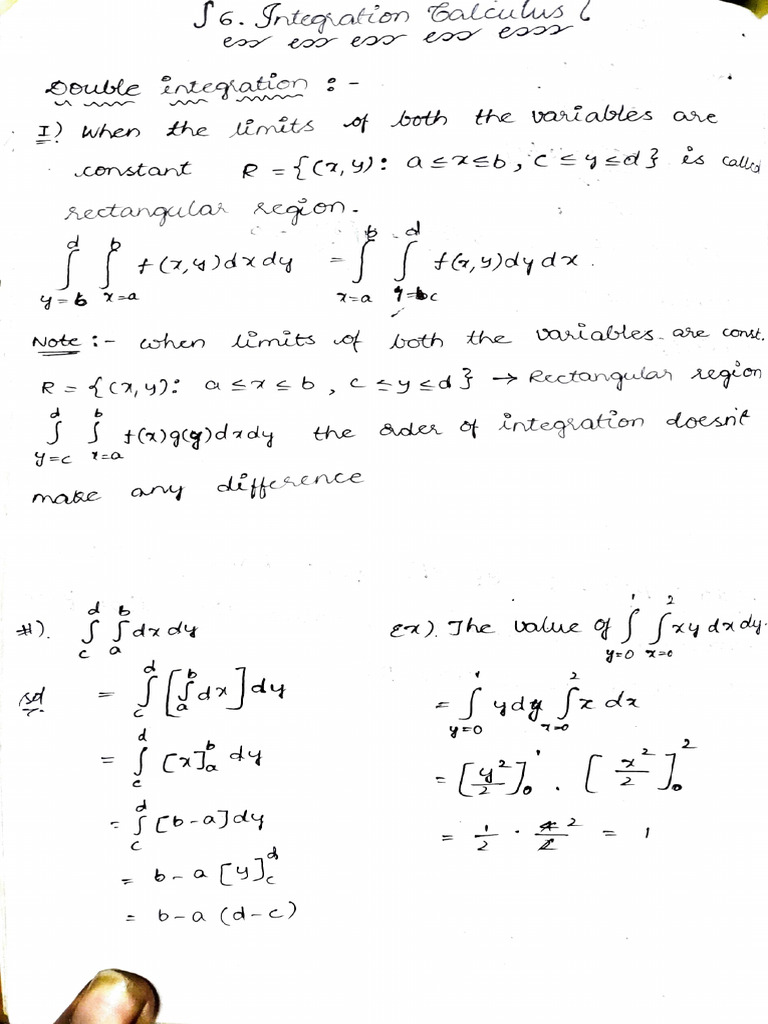 ∫ 6. Integration Calculus
Double integration :-
I) When the limits of both the variables are
constant R = {(x,y): a ≤ x ≤ b, c ≤ y ≤ d} is called
rectangular region.
∫_{y=b}^{d} ∫_{x=a}^{b} f(x,y) dx dy = ∫_{x=a}^{b} ∫_{y=c}^{d} f(x,y) dy dx.
Note :- when limits of both the variables are const.
R = {(x,y): a ≤ x ≤ b, c ≤ y ≤ d} → Rectangular region
∫_{y=c}^{d} ∫_{x=a}^{b} f(x) g(y) dx dy the order of integration doesn't
make any difference
#). ∫_{c}^{d} ∫_{a}^{b} dx dy
sol = ∫_{c}^{d} [∫_{a}^{b} dx] dy
= ∫_{c}^{d} [x]_{a}^{b} dy
= ∫_{c}^{d} [b-a] dy
= b-a [y]_{c}^{d}
= b-a (d-c)
Ex). The value of ∫_{y=0}^{1} ∫_{x=0}^{2} xy dx dy.
= ∫_{y=0}^{1} y dy ∫_{x=0}^{2} x dx
= [y²/2]_{0}^{1} . [x²/2]_{0}^{2}
= 1/2 · 4/2 2 = 1